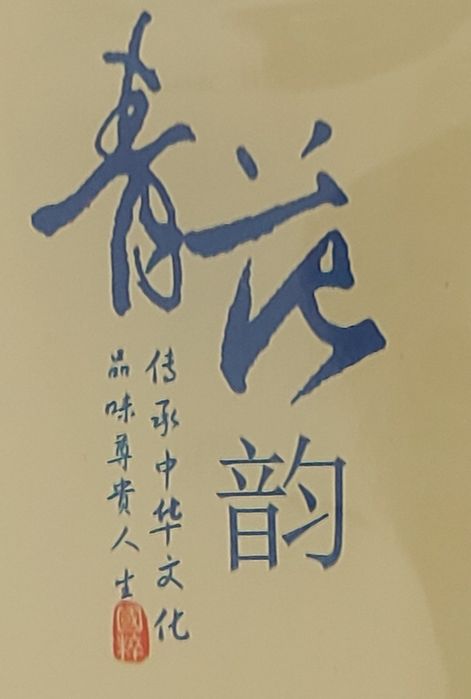 青花
韵
传承中华文化
品味尊贵人生
國粹